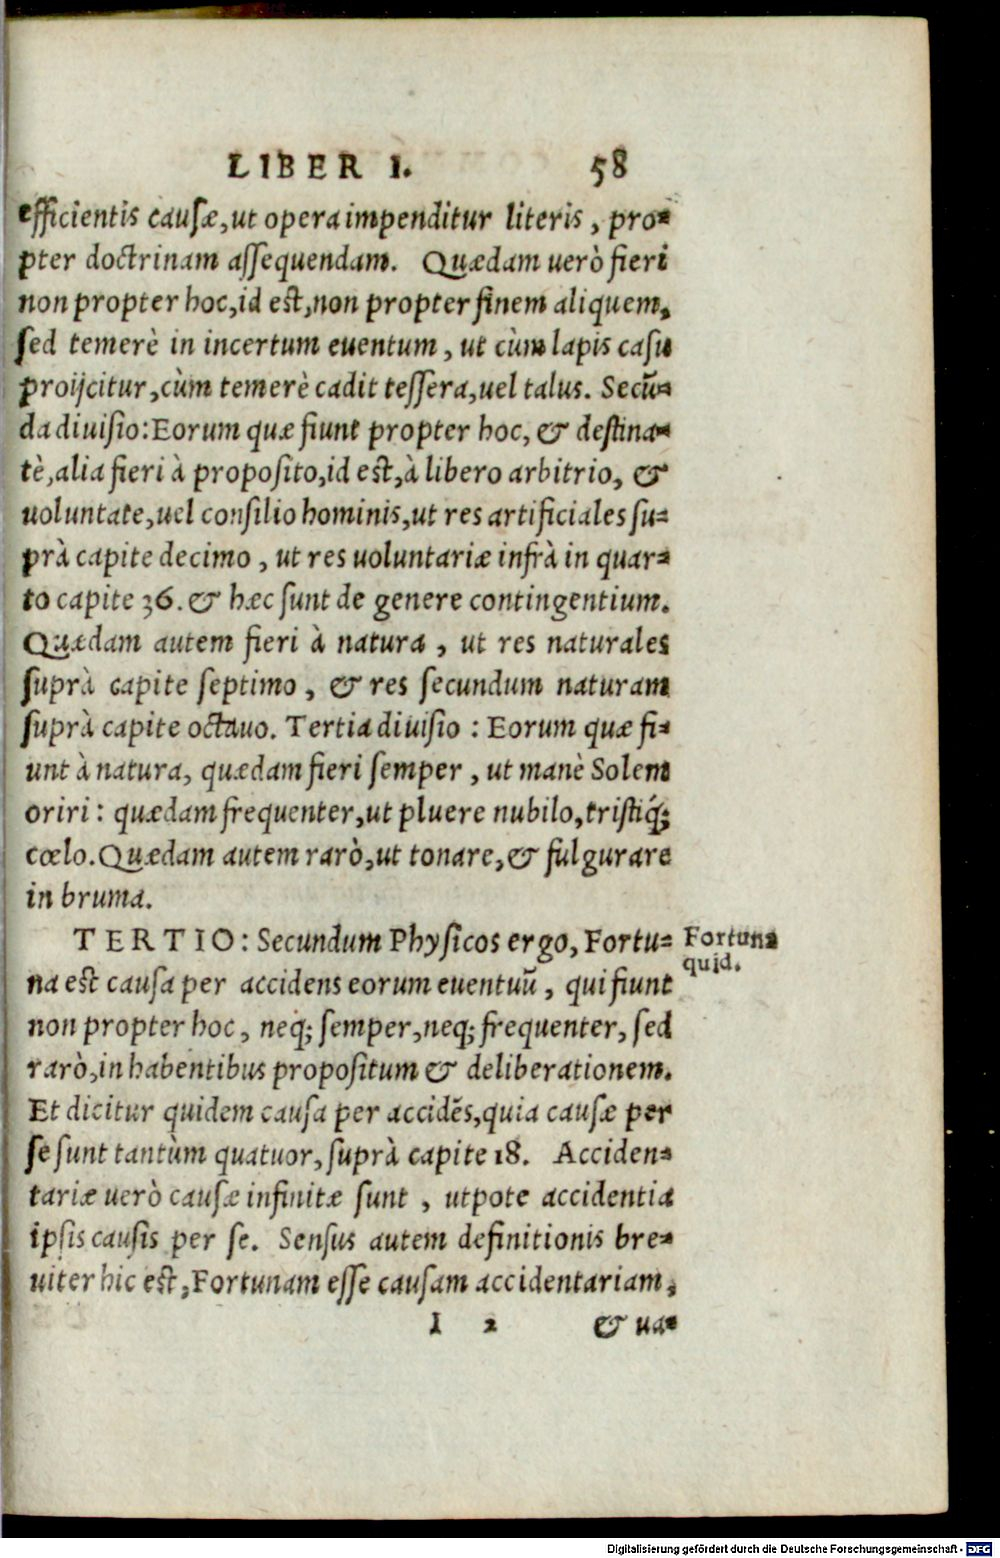 LIBER I. 58
efficientis causæ, ut opera impenditur literis, pro-
pter doctrinam assequendam. Quædam uerò fieri
non propter hoc, id est, non propter finem aliquem,
sed temerè in incertum euentum, ut cùm lapis casu
proijcitur, cùm temerè cadit tessera, uel talus. Secũ-
da diuisio: Eorum quæ fiunt propter hoc, & destina-
tè, alia fieri à proposito, id est, à libero arbitrio, &
uoluntate, uel consilio hominis, ut res artificiales su-
prà capite decimo, ut res uoluntariæ infrà in quar-
to capite 36. & hæc sunt de genere contingentium.
Quædam autem fieri à natura, ut res naturales
suprà capite septimo, & res secundum naturam
suprà capite octauo. Tertia diuisio: Eorum quæ fi-
unt à natura, quædam fieri semper, ut manè Solem
oriri: quædam frequenter, ut pluere nubilo, tristiq́;
cœlo. Quædam autem rarò, ut tonare, & fulgurare
in bruma.
TERTIO: Secundum Physicos ergo, Fortu-
na est causa per accidens eorum euentuũ, qui fiunt
non propter hoc, neq; semper, neq; frequenter, sed
rarò, in habentibus propositum & deliberationem.
Et dicitur quidem causa per accidẽs, quia causæ per
se sunt tantùm quatuor, suprà capite 18. Acciden-
tariæ uerò causæ infinitæ sunt, utpote accidentia
ipsis causis per se. Sensus autem definitionis bre-
uiter hic est, Fortunam esse causam accidentariam,
I 2 & ua-
Fortuna
quid.
Digitalisierung gefördert durch die Deutsche Forschungsgemeinschaft - DFG